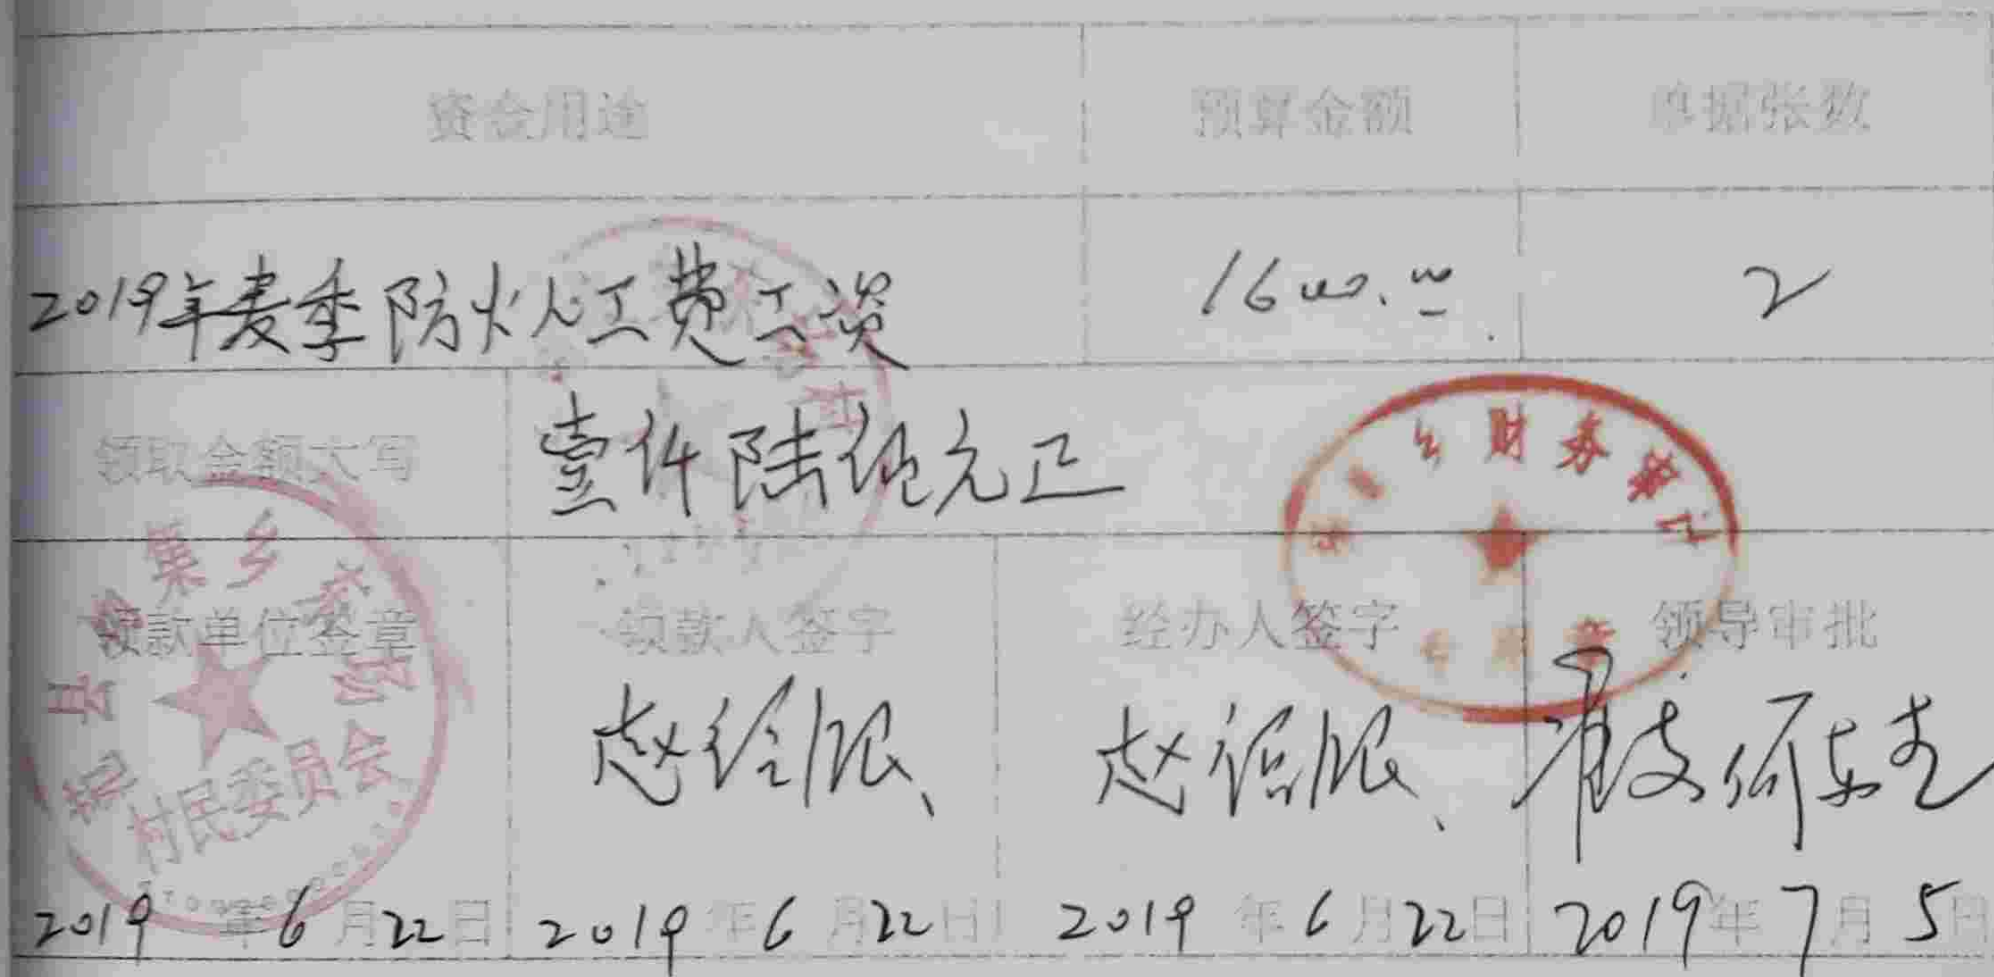 资金用途 预算金额 单据张数
2019年麦季防火人工费工资 1600.00 2
领取金额大写 壹仟陆佰元正
领款单位签章 领款人签字 经办人签字 领导审批
集乡
县
村民委员会
财务
专用章
赵 赵
2019年6月22日 2019年6月22日 2019年6月22日 2019年7月5日